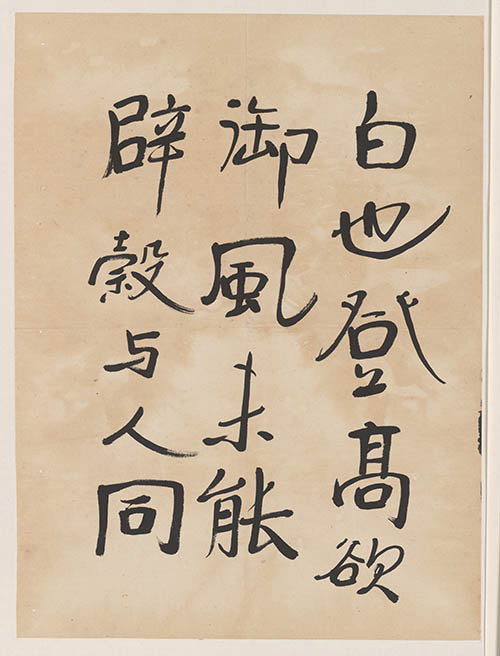 白也登高欲
御風未能
辟穀与人同